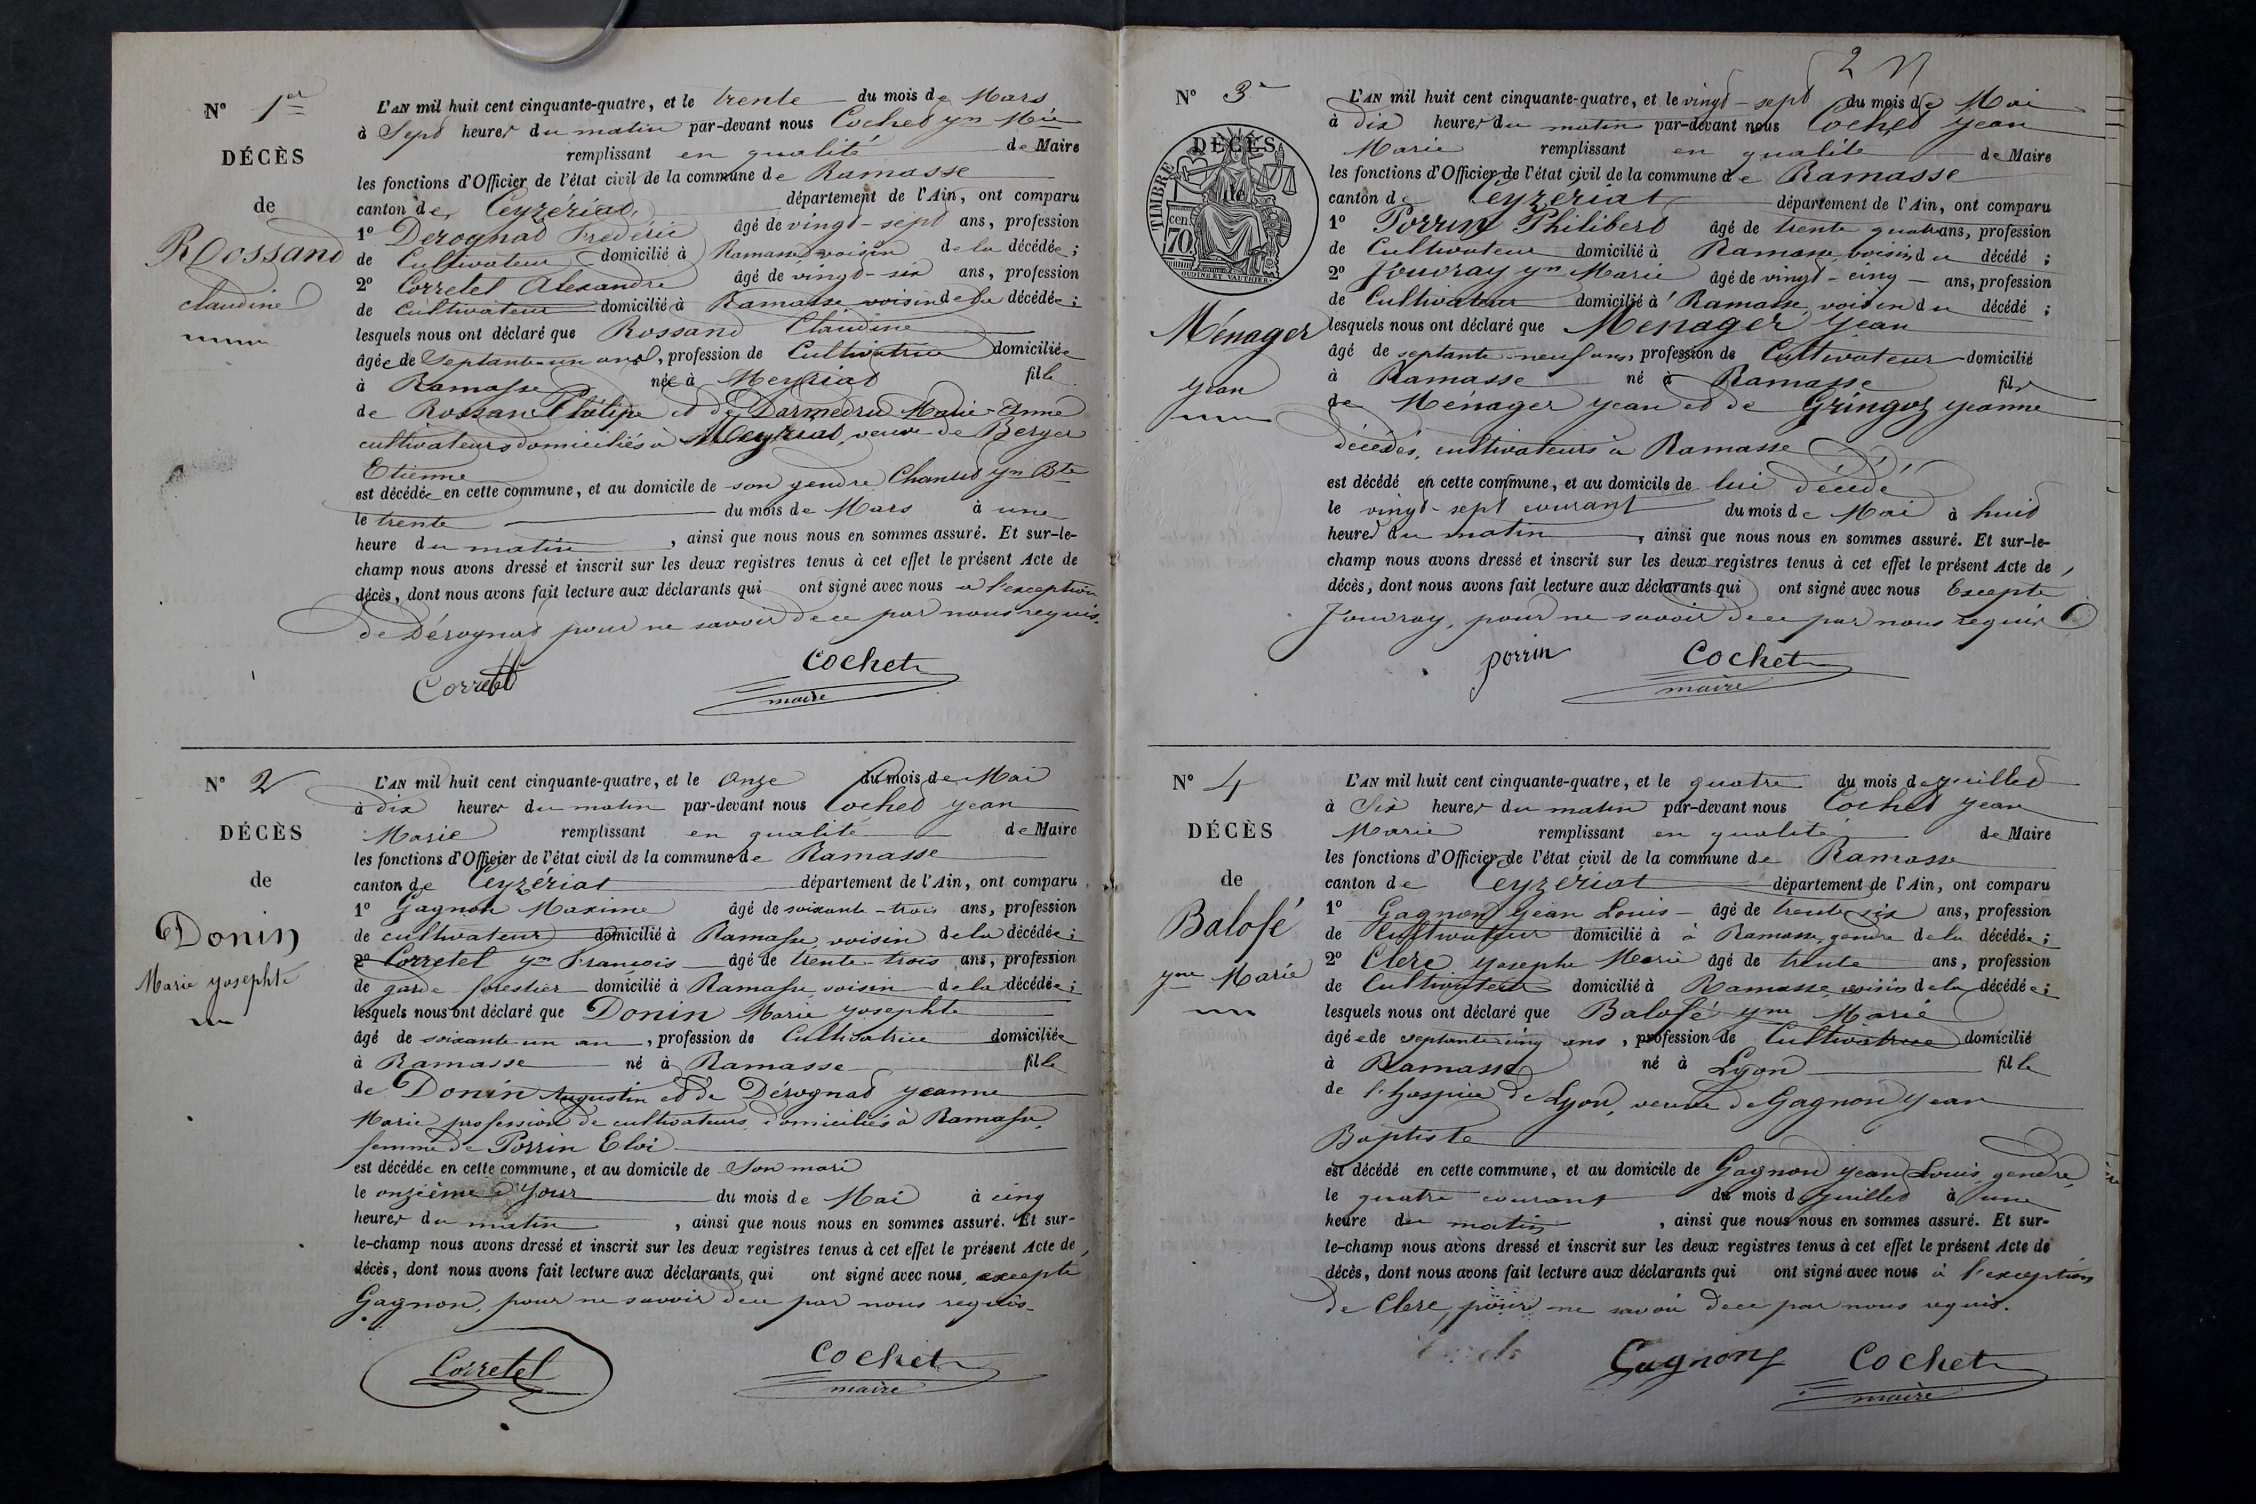 N° 1er
DÉCÈS
de
Rossand
claudine
L'AN mil huit cent cinquante-quatre, et le trente du mois de Mars
à Sept heures du matin par-devant nous Cochet Jn Mie
remplissant en qualité de Maire
les fonctions d'Officier de l'état civil de la commune de Ramasse
canton de Ceyzériat, département de l'Ain, ont comparu
1° Derognat Frédéric âgé de vingt-sept ans, profession
de Cultivateur domicilié à Ramasse voisin de la décédée ;
2° Corretel Alexandre âgé de vingt-six ans, profession
de Cultivateur domicilié à Ramasse voisin de la décédée ;
lesquels nous ont déclaré que Rossand Claudine
âgée de Septante-un ans, profession de Cultivatrice domiciliée
à Ramasse née à Meyriat fille
de Rossand Phélipe et de Darmedru Marie-Anne
cultivateurs domiciliés à Meyriat, veuve de Berger
Etienne
est décédée en cette commune, et au domicile de son gendre Chanut Jn Bte
le trente du mois de Mars à une
heure du matin, ainsi que nous nous en sommes assuré. Et sur-le-
champ nous avons dressé et inscrit sur les deux registres tenus à cet effet le présent Acte de
décès, dont nous avons fait lecture aux déclarants qui ont signé avec nous à l'exception
de Dérognat pour ne savoir de ce par nous requis.
Corretel
Cochet
maire
N° 2
DÉCÈS
de
Donin
Marie Josephte
L'AN mil huit cent cinquante-quatre, et le Onze du mois de Mai
à dix heures du matin par-devant nous Cochet Jean
Marie remplissant en qualité de Maire
les fonctions d'Officier de l'état civil de la commune de Ramasse
canton de Ceyzériat département de l'Ain, ont comparu
1° Gagnon Maxime âgé de soixante-trois ans, profession
de cultivateur domicilié à Ramasse, voisin de la décédée ;
2° Corretel Jn François âgé de trente-trois ans, profession
de garde forestier domicilié à Ramasse voisin de la décédée ;
lesquels nous ont déclaré que Donin Marie Josephte
âgé de soixante un an, profession de Cultivatrice domiciliée
à Ramasse né à Ramasse fille
de Donin Augustin et de Dérognat Jeanne
Marie profession de cultivateurs, domiciliés à Ramasse,
femme de Porrin Eloi
est décédée en cette commune, et au domicile de Son mari
le onzième jour du mois de Mai à cinq
heures du matin, ainsi que nous nous en sommes assuré. Et sur-
le-champ nous avons dressé et inscrit sur les deux registres tenus à cet effet le présent Acte de
décès, dont nous avons fait lecture aux déclarants qui ont signé avec nous, excepté
Gagnon, pour ne savoir de ce par nous requis.
Corretel
Cochet
maire
2
N° 3
DÉCÈS
de
TIMBRE
cen
70
OUDINE ET VAUTHIER
Ménager
Jean
L'AN mil huit cent cinquante-quatre, et le vingt-sept du mois de Mai
à dix heures du matin par-devant nous Cochet Jean
Marie remplissant en qualité de Maire
les fonctions d'Officier de l'état civil de la commune de Ramasse
canton de Ceyzeriat département de l'Ain, ont comparu
1° Porrin Philibert âgé de trente quatre ans, profession
de Cultivateur domicilié à Ramasse, voisin du décédé ;
2° Jouvray Jn Marie âgé de vingt-cinq ans, profession
de Cultivateur domicilié à Ramasse, voisin du décédé ;
lesquels nous ont déclaré que Ménager Jean
âgé de septante-neuf ans, profession de Cultivateur domicilié
à Ramasse né à Ramasse fils
de Ménager Jean et de Gringoz Jeanne
décédés, cultivateurs à Ramasse
est décédé en cette commune, et au domicile de lui décédé
le vingt-sept courant du mois de Mai à huit
heures du matin, ainsi que nous nous en sommes assuré. Et sur-le-
champ nous avons dressé et inscrit sur les deux registres tenus à cet effet le présent Acte de
décès, dont nous avons fait lecture aux déclarants qui ont signé avec nous Excepté
Jouvray, pour ne savoir de ce par nous requis
porrin
Cochet
maire
N° 4
DÉCÈS
de
Balofé
Jne Marie
L'AN mil huit cent cinquante-quatre, et le quatre du mois de juillet
à Six heures du matin par-devant nous Cochet Jean
Marie remplissant en qualité de Maire
les fonctions d'Officier de l'état civil de la commune de Ramasse
canton de Ceyzeriat département de l'Ain, ont comparu
1° Gagnon Jean Louis âgé de trente six ans, profession
de Cultivateur domicilié à à Ramasse, gendre de la décédée ;
2° Clerc Josephe Marie âgé de trente ans, profession
de Cultivateur domicilié à Ramasse, voisin de la décédée ;
lesquels nous ont déclaré que Balofé Jne Marie
âgée de septante cinq ans, profession de Cultivatrice domicilié
à Ramasse né à Lyon fille
de l'hospice de Lyon, veuve de Gagnon Jean
Baptiste
est décédé en cette commune, et au domicile de Gagnon Jean Louis, gendre,
le quatre courant du mois d juillet à une
heure du matin, ainsi que nous nous en sommes assuré. Et sur-
le-champ nous avons dressé et inscrit sur les deux registres tenus à cet effet le présent Acte de
décès, dont nous avons fait lecture aux déclarants qui ont signé avec nous à l'exception
de Clerc, pour ne savoir de ce par nous requis.
Gagnon
Cochet
maire